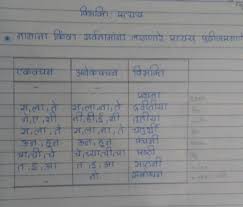 विभक्ति प्रत्यय
* नामाला किंवा सर्वनामांना लागणारे प्रत्यय
एकवचन अनेकवचन विभक्ति
- - प्रथमा
स, ला, ते स, ला, ना, ते द्वितीया
ने, ए, शी नी, ही, ई, शी तृतीया
स, ला, ते स, ला, ना, ते चतुर्थी
ऊन, हून ऊन, हून पंचमी
चा, ची, चे चे, च्या, ची, चा षष्ठी
त, ई, आ त, ई, आ सप्तमी
- नो संबोधन